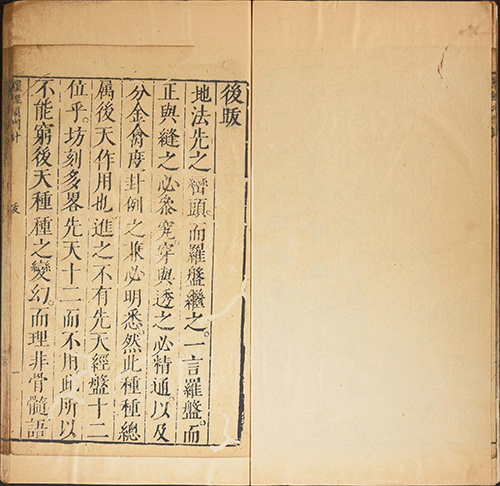 後䟦
地法先之巒頭。而羅盤繼之。一言羅盤。而
正與縫之必參究。穿與透之必精通。以及
分金禽度卦例之兼必明悉。然此種種總
属後天作用也。進之不有先天經盤十二
位乎。坊刻多畧先天十二而不用。此所以
不能窮後天種種之變幻。而理非骨髓語
羅經頂門針
跋
一